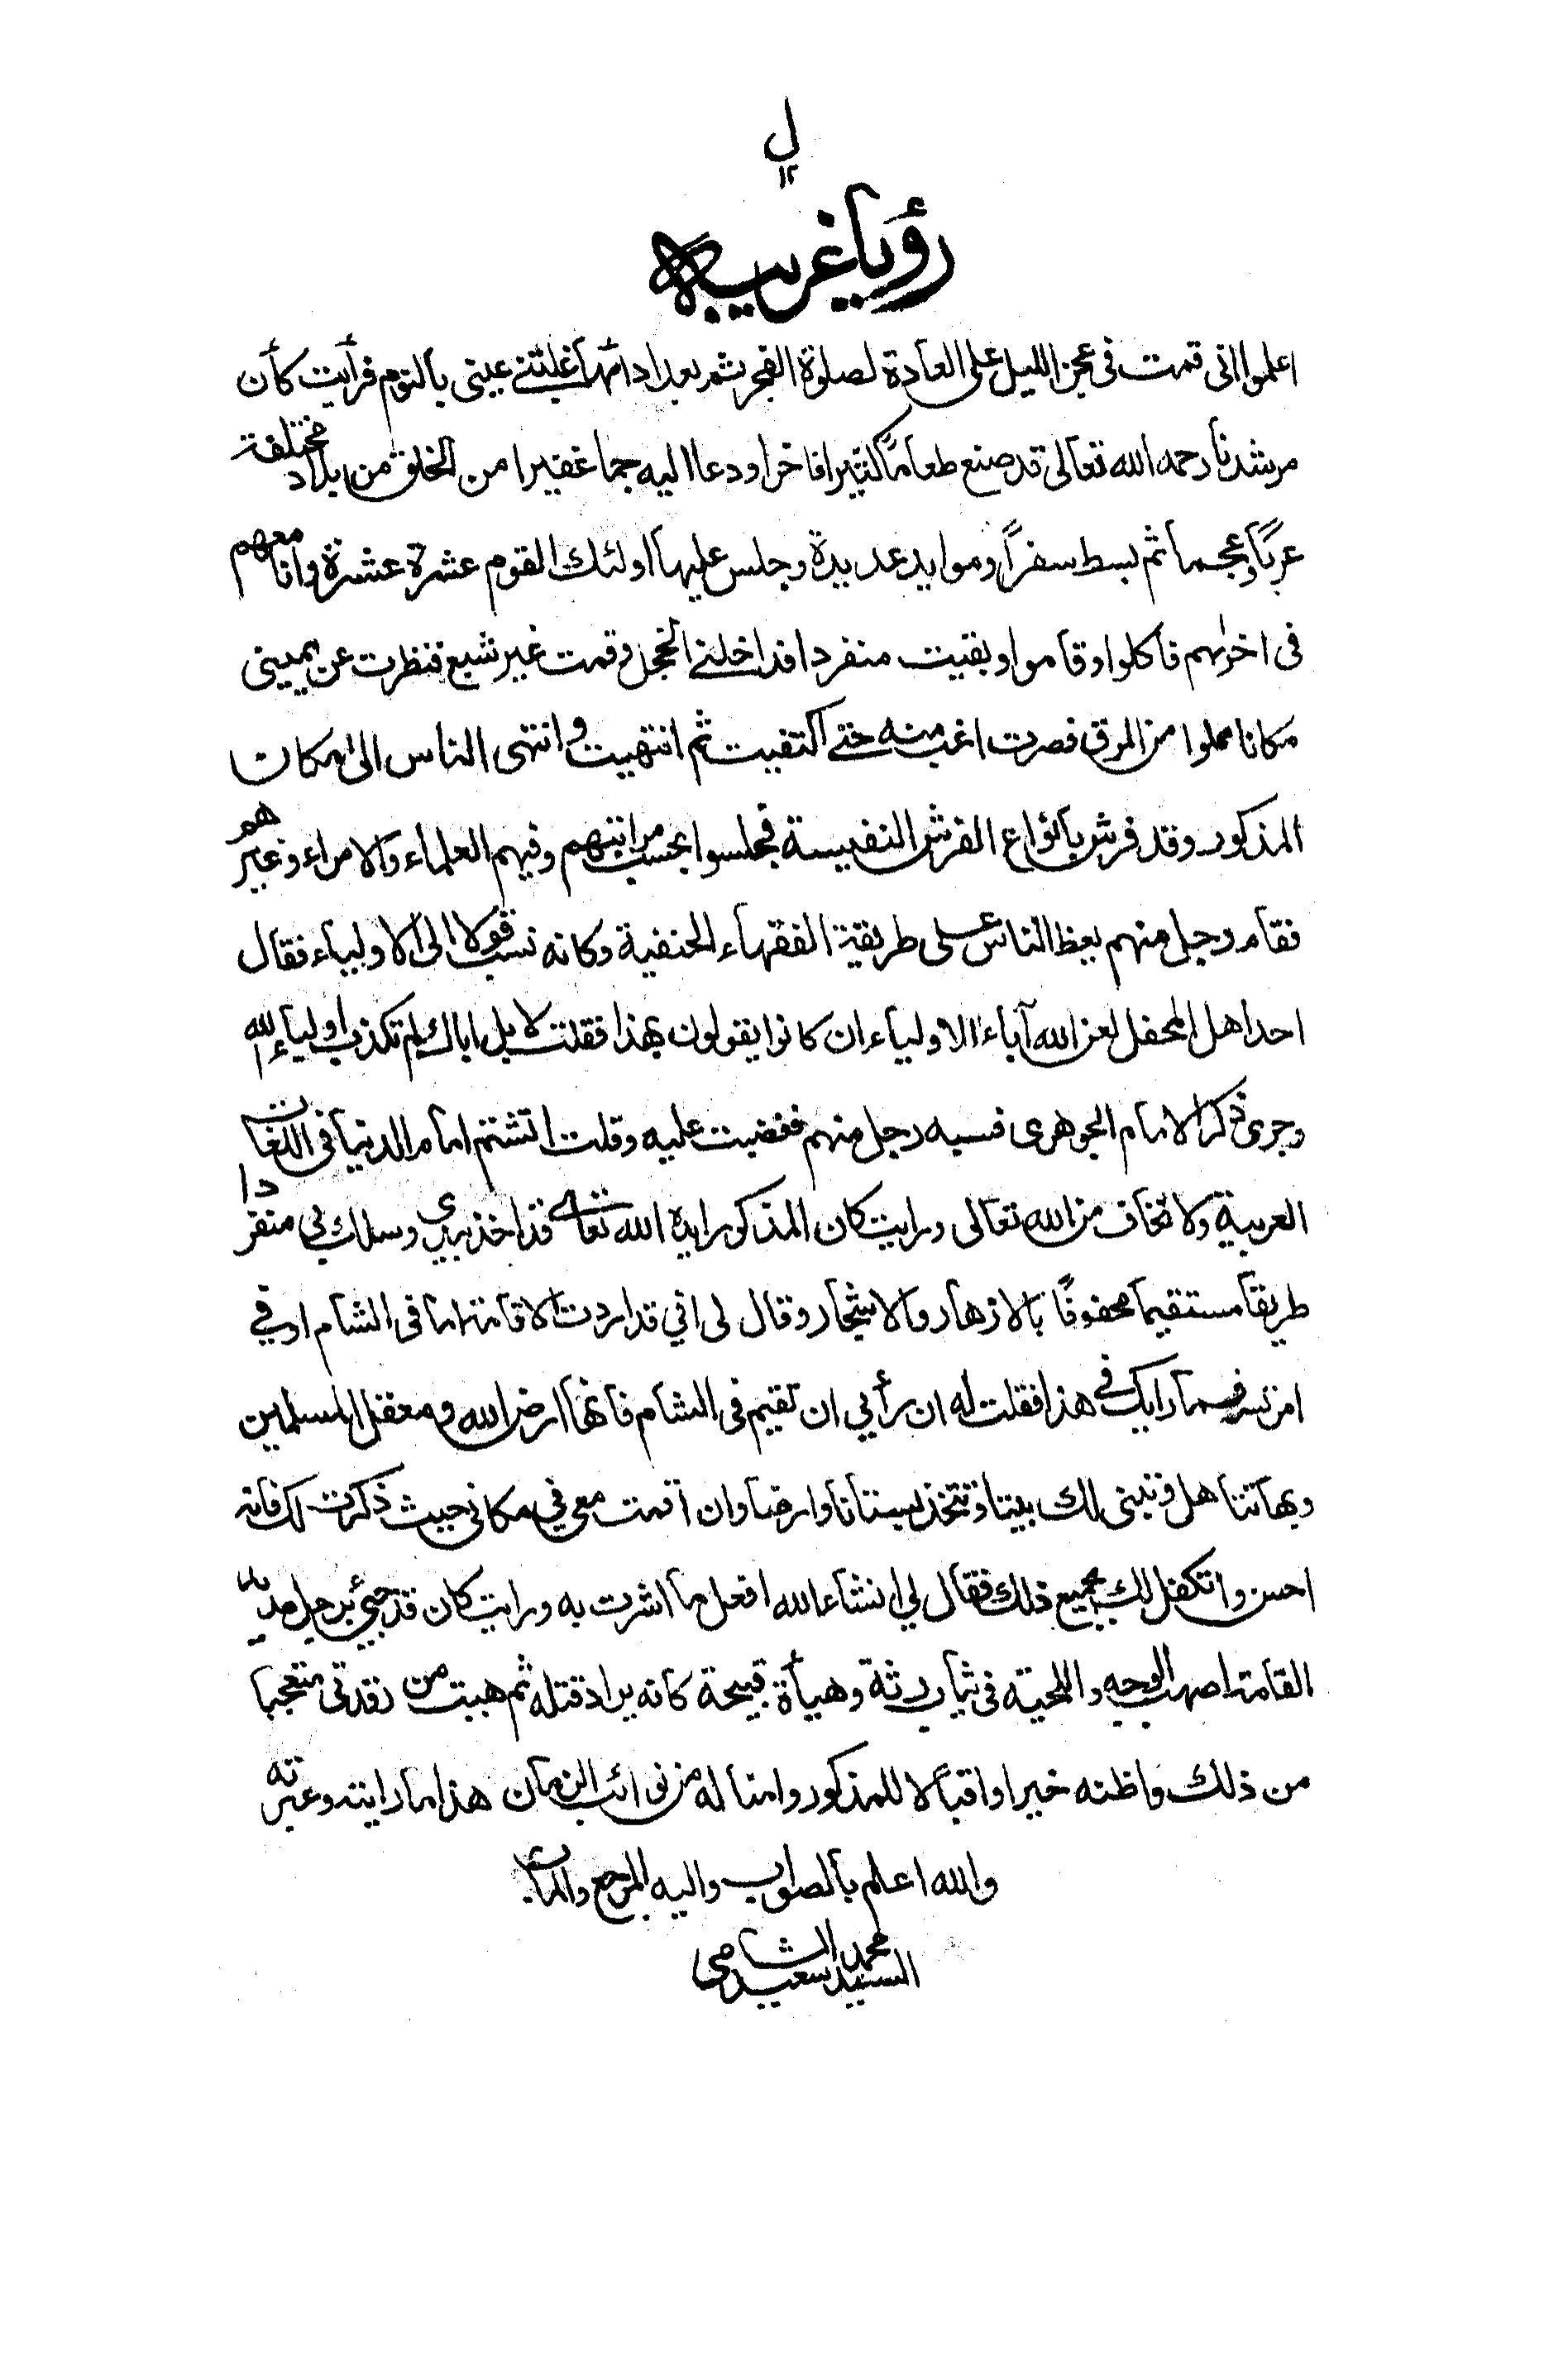 ل
١٢
رؤيا غريبة
اعلموا انى قمت فى عجز الليل على العادة لصلوة الفجر ثم بعد ادائها غلبتنے عينى بالنوم فرأيت كأن
مرشدنا رحمه الله تعالى قد صنع طعاماً كثيرا فاخرا ودعا اليه جما غفيرا من الخلق من بلاد مختلفة
عرباً وعجما ثم بسط سفراً وموايد عديدة وجلس عليها اولئك القوم عشرة عشرة وانا معهم
فى اخرهم فاكلوا وقاموا وبقيت منفردا فداخلنے الخجل وقمت غير شبع فنظرت عن يمينى
مكانا مملوا من المرق فصرت اغب منه حتے اكتفيت ثم انتهيت وانتهى الناس الى المكان
المذكور وقد فرش بانواع الفرش النفيسة فجلسوا بحسب مراتبهم وفيهم العلماء والامراء وغيرهم
فقام رجل منهم يعظ الناس على طريقة الفقهاء الحنفية وكانه نسب قولا الى الاولياء فقال
احد اهل المحفل لعن الله آباء الاولياء ان كانوا يقولون بهذا فقلت لا بل اباك لم تكذب اولياء الله
وجرى ذكر الامام الجوهرى فسبه رجل منهم فغضبت عليه وقلت اتشتم امام الدنيا فى اللغات
العربية ولا تخاف من الله تعالى ورايت كان المذكور ايدة الله تعالى قد اخذ بيدى وسلك بي منفردا
طريقا مستقيما محفوفاً بالازهار والاشجار وقال لى اني قد اردت الاقامة اما فى الشام او في
امرتسر فما رايك في هذا فقلت له ان رأيي ان تقيم فى الشام فانها ارض الله ومعقل المسلمين
وبها تتاهل ونبنى لك بيتا وتتخذ بستانا وارضا وان اقمت معى في مكانى حيث ذكرت لك فانه
احسن واتكفل لك بجميع ذلك فقال لي انشاء الله افعل ما اشرت به ورايت كان قد جيئ برجل مديد
القامة اصهب الوجه واللحية فى ثياب رثة وهيأة قبيحة كانه يراد قتله ثم هببت من رقدتى متعجبا
من ذلك واظنه خيرا واقبالا للمذكور وامنا له من نوائب الزمان هذا ما رايته وعبرته
والله اعلم بالصواب واليه المرجع والمآب
السيد محمد سعيد الشامى